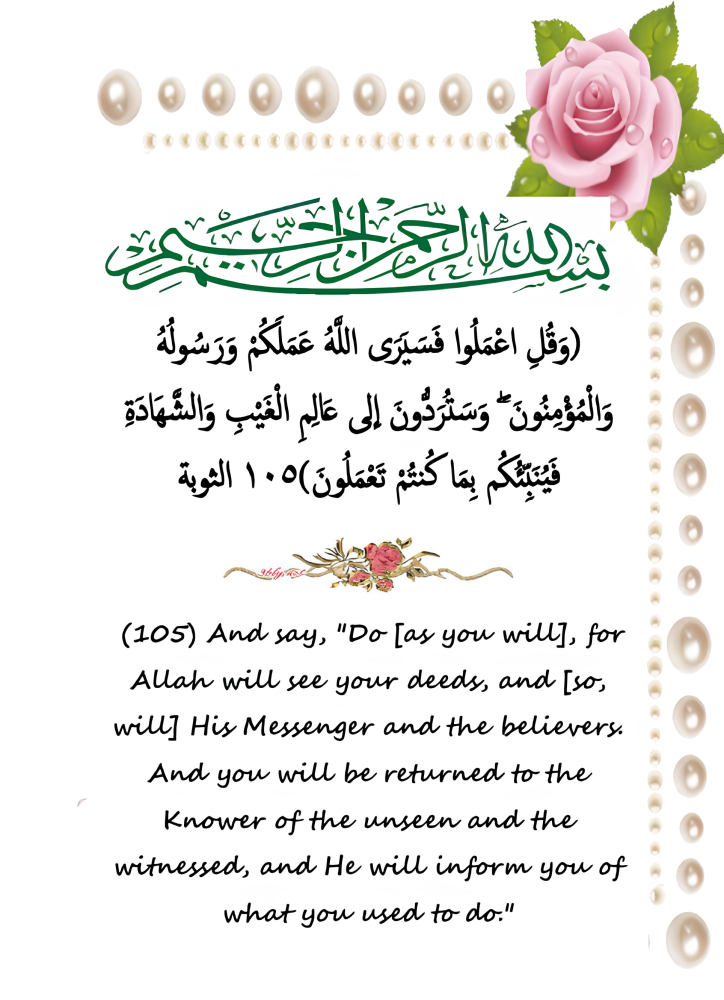 بسم الله الرحمن الرحيم
(وَقُلِ اعْمَلُوا فَسَيَرَى اللَّهُ عَمَلَكُمْ وَرَسُولُهُ
وَالْمُؤْمِنُونَ ۖ وَسَتُرَدُّونَ إِلى عَالِمِ الْغَيْبِ وَالشَّهَادَةِ
فَيُنَبِّئُكُم بِمَا كُنتُمْ تَعْمَلُونَ)١٠٥ الثوبة
(105) And say, "Do [as you will], for
Allah will see your deeds, and [so,
will] His Messenger and the believers.
And you will be returned to the
Knower of the unseen and the
witnessed, and He will inform you of
what you used to do."